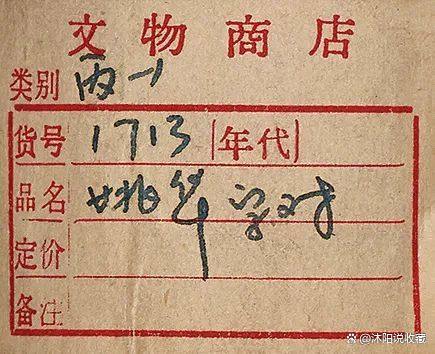 文物商店
类别 丙一
货号 1713 年代
品名 姚华 字对
定价
备注
@沐阳说收藏